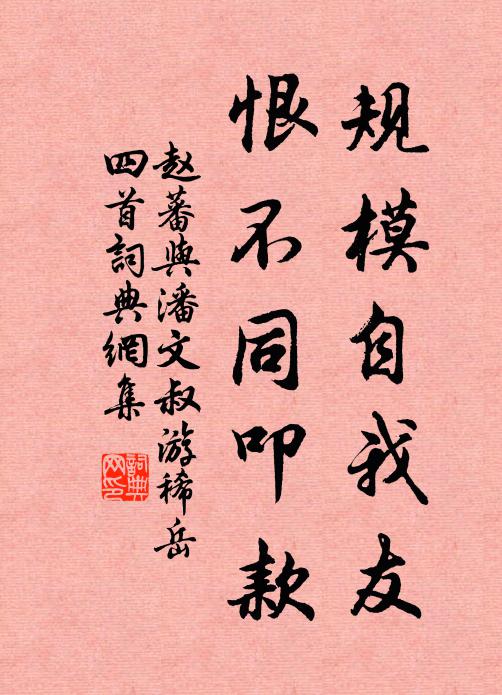 规模自我友
恨不同叩款
赵蕃與潘文叔游稀岳
四首詞典網集
詞典
网印